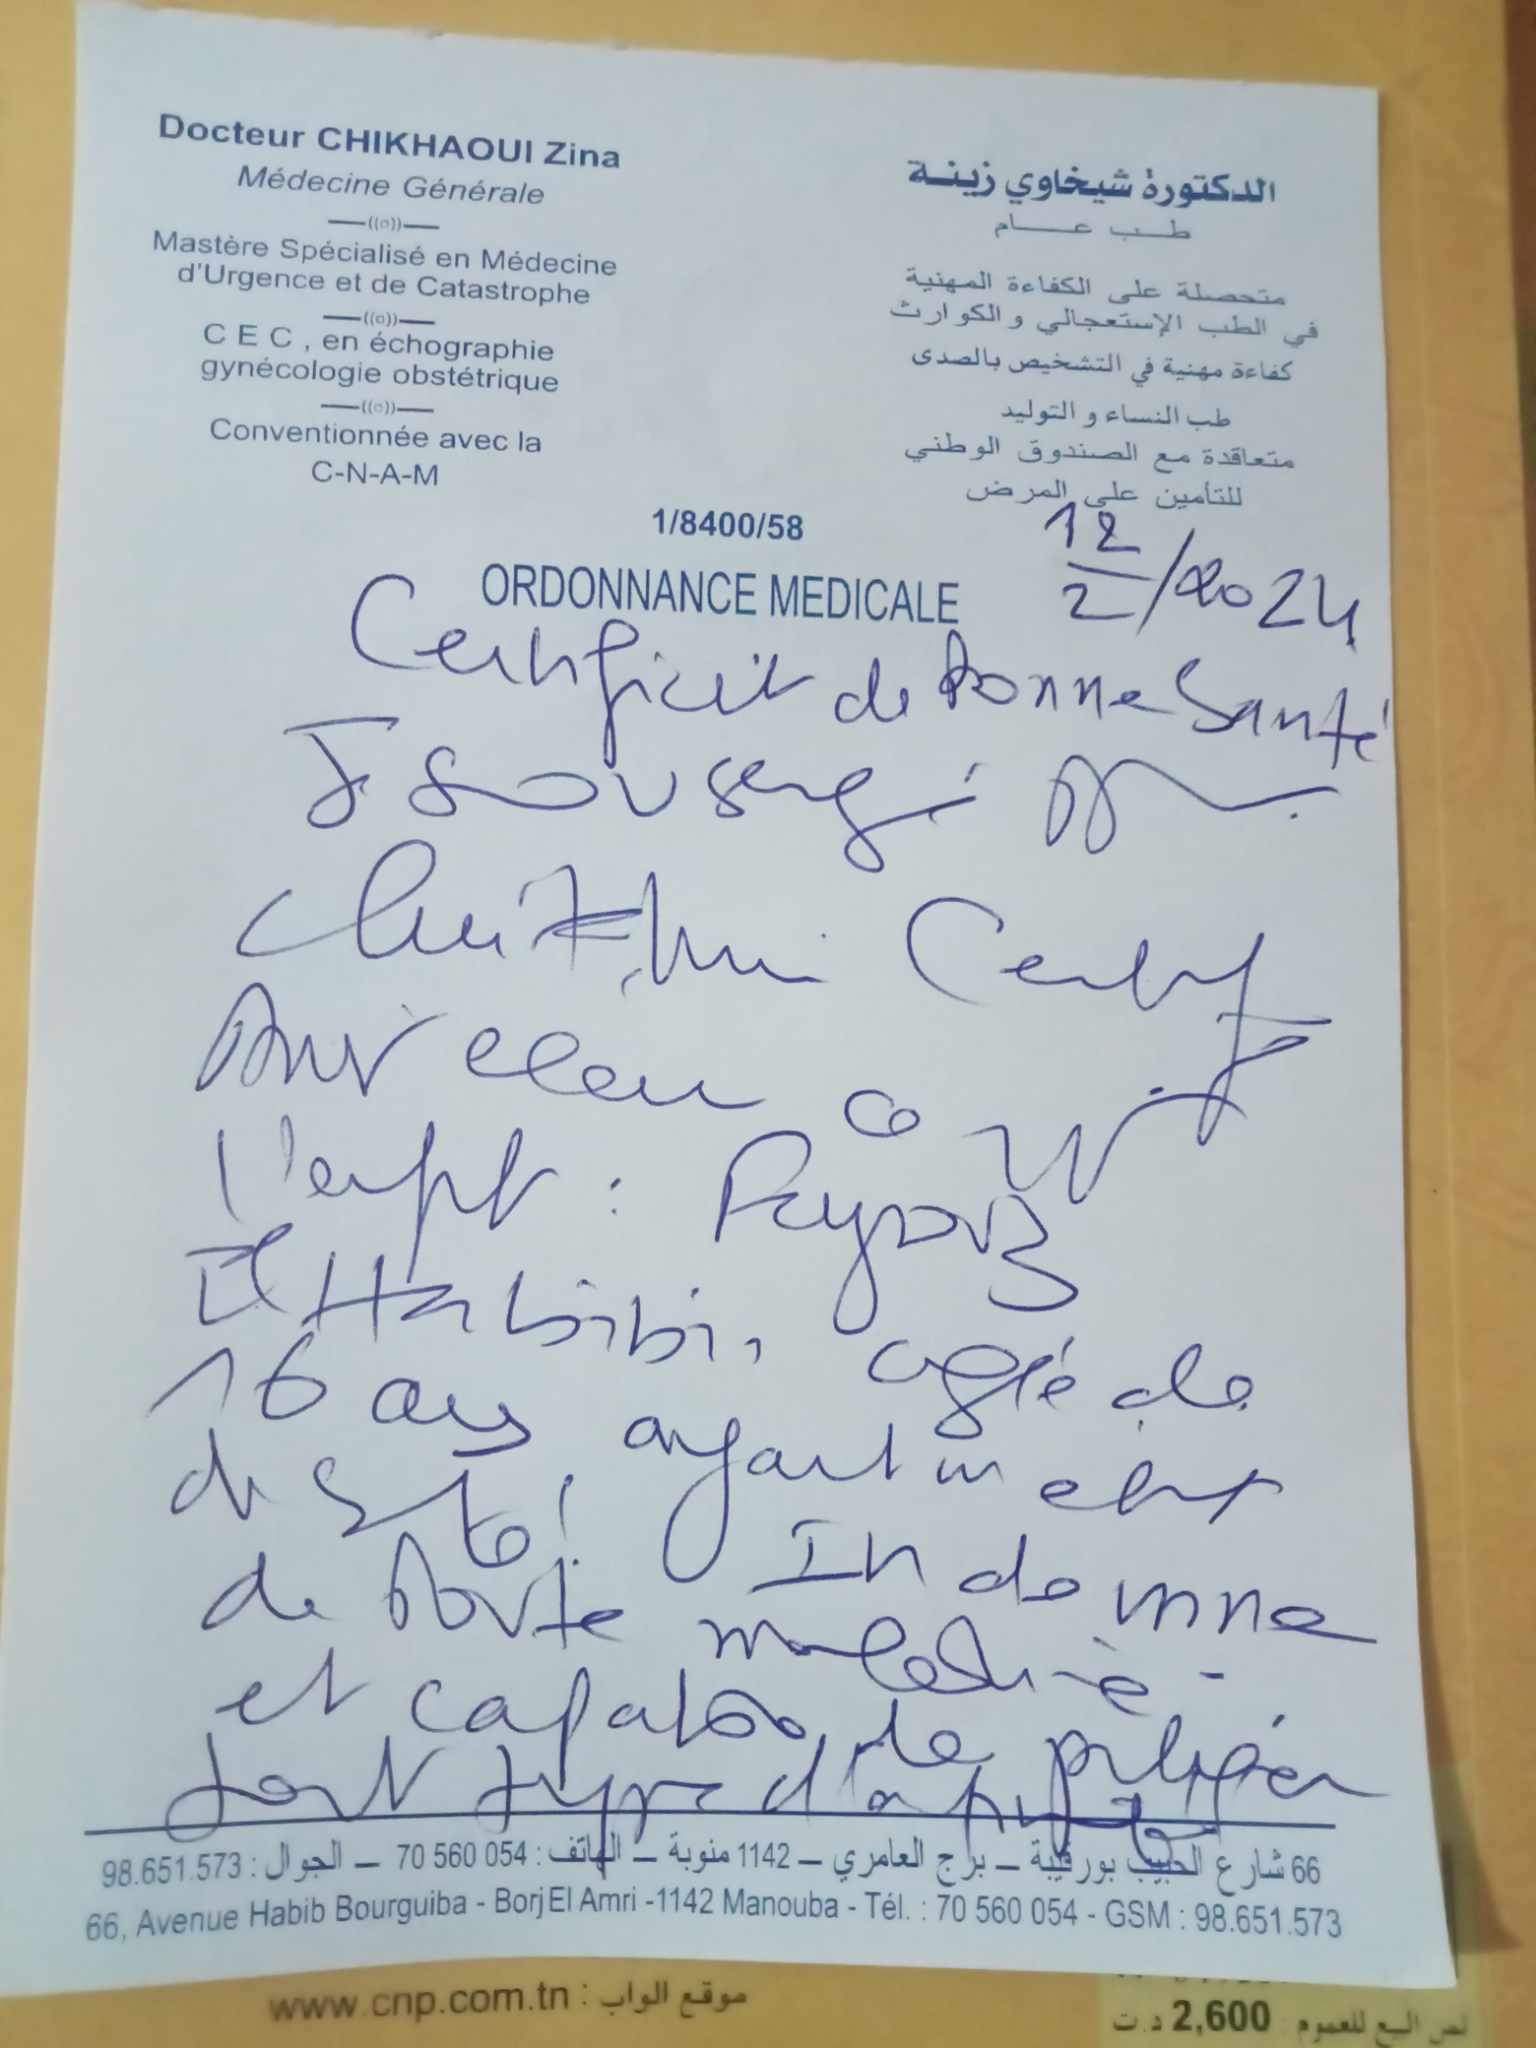 Docteur CHIKHAOUI Zina
Médecine Générale
Mastère Spécialisé en Médecine
d'Urgence et de Catastrophe
C E C , en échographie
gynécologie obstétrique
Conventionnée avec la
C-N-A-M
الدكتورة شيخاوي زينة
طب عام
متحصلة على الكفاءة المهنية
في الطب الإستعجالي و الكوارث
كفاءة مهنية في التشخيص بالصدى
طب النساء و التوليد
متعاقدة مع الصندوق الوطني
للتأمين على المرض
1/8400/58
ORDONNANCE MEDICALE
12/2/2024
Certificat de bonne Santé
Je soussigné
Certifie
avoir
l'enfant :
El Habibi, agé de
16 ans ayant
de santé Indemne
de toute maladie
et capable de
tout type d'
66 شارع الحبيب بورقيبة – برج العامري – 1142 منوبة – الهاتف : 054 560 70 – الجوال : 98.651.573
66, Avenue Habib Bourguiba - Borj El Amri -1142 Manouba - Tél. : 70 560 054 - GSM : 98.651.573
موقع الواب : www.cnp.com.tn
2,600 د.ت